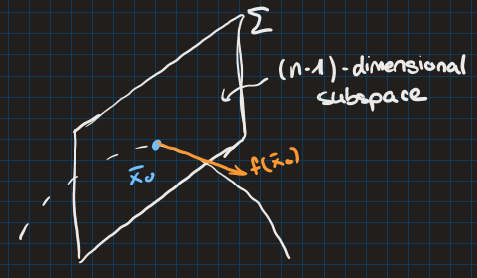 Σ
(n-1)-dimensional
subspace
f(x̄₀)
x̄₀